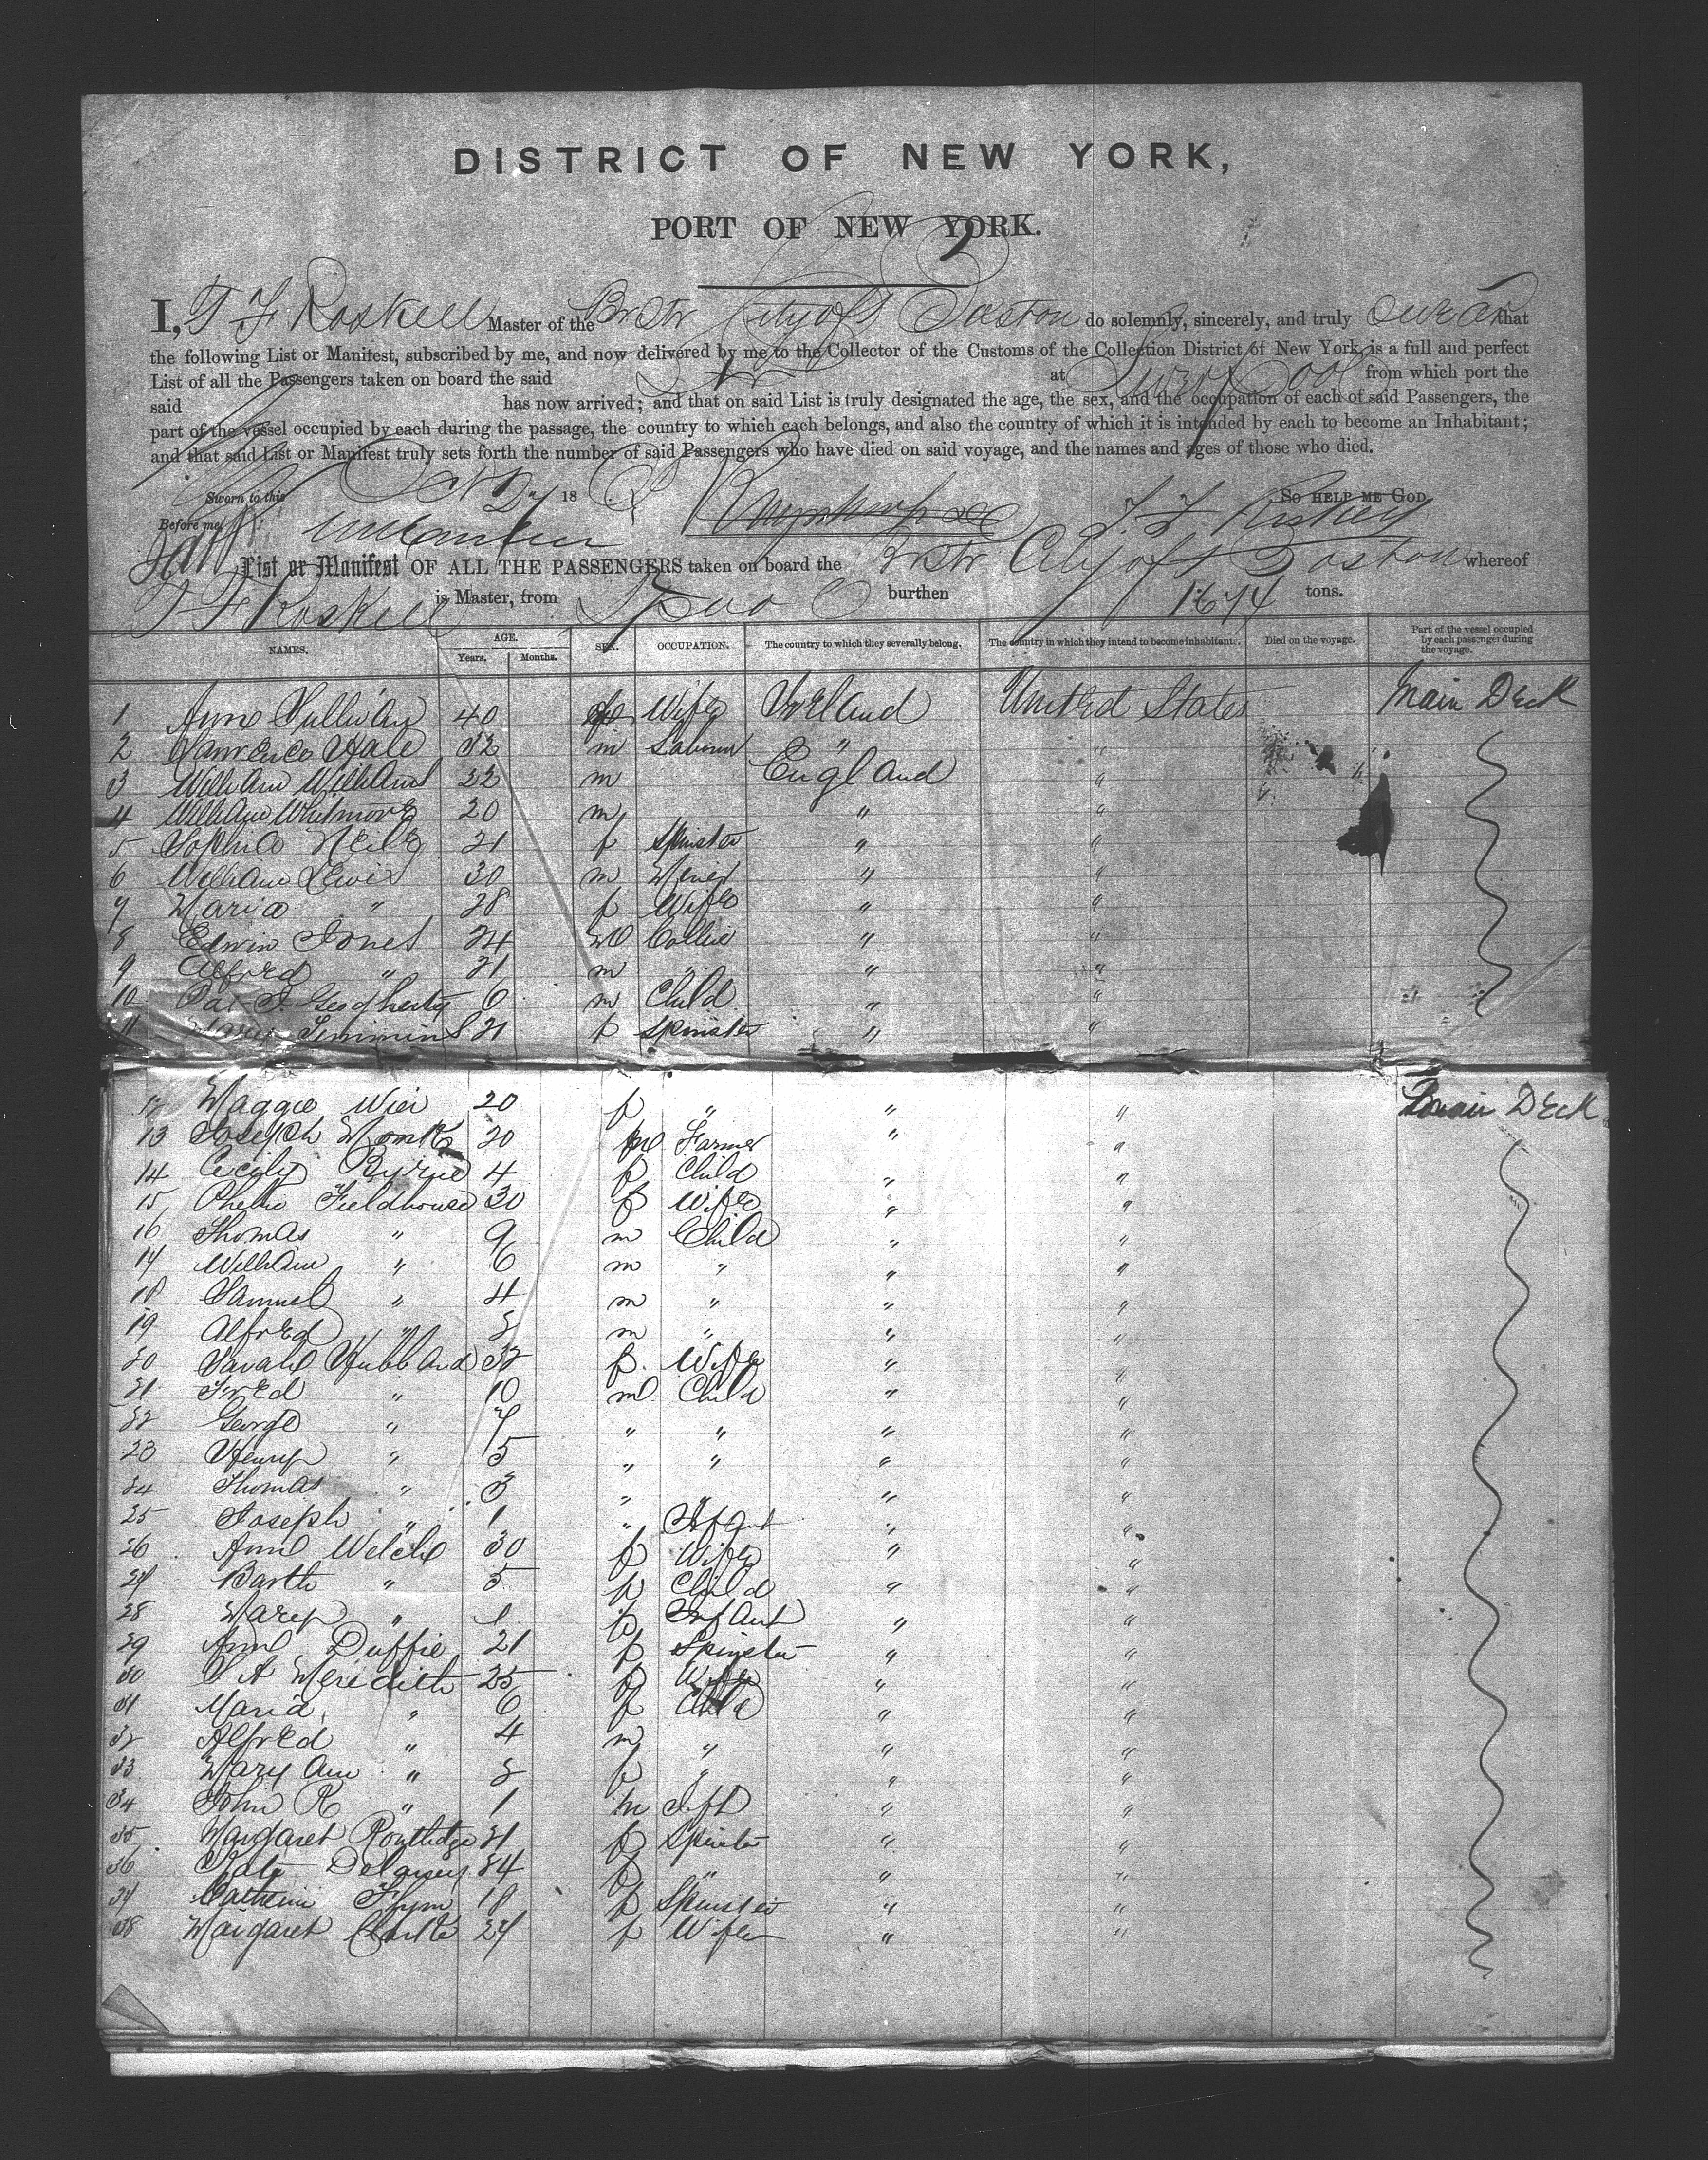 DISTRICT OF NEW YORK,
PORT OF NEW YORK.
2
I, T F Roskell Master of the Br Str City of Boston do solemnly, sincerely, and truly swear that
the following List or Manifest, subscribed by me, and now delivered by me to the Collector of the Customs of the Collection District of New York, is a full and perfect
List of all the Passengers taken on board the said Str at Liverpool from which port the
said has now arrived; and that on said List is truly designated the age, the sex, and the occupation of each of said Passengers, the
part of the vessel occupied by each during the passage, the country to which each belongs, and also the country of which it is intended by each to become an Inhabitant;
and that said List or Manifest truly sets forth the number of said Passengers who have died on said voyage, and the names and ages of those who died.
Sworn to this 18 So HELP ME GOD,
Before me,
List or Manifest OF ALL THE PASSENGERS taken on board the Br Str City of Boston whereof
T F Roskell is Master, from burthen 1674 tons.
NAMES. AGE. Years. Months. SEX. OCCUPATION. The country to which they severally belong. The country in which they intend to become inhabitants. Died on the voyage. Part of the vessel occupied by each passenger during the voyage.
1 Ann Sullivan 40 f Wife Ireland United States Main Deck
2 Lawrence Hale 32 m Labourer " "
3 William Williams 22 m England "
4 William Whitmore 20 m " "
5 Sophia Neile 21 f Spinster " "
6 William Lewis 30 m Miner " "
7 Maria " 28 f Wife " "
8 Edwin Jones 24 m Collier " "
9 Alfred " 21 m " " "
10 Geogherty 6 m Child " "
11 Mary Simmins 21 f Spinster " "
12 Maggie Wier 20 f " " " Main Deck
13 Joseph Monks 20 m Farmer " "
14 Cecily Byrne 4 f Child " "
15 Phebe Fieldhouse 30 f Wife " "
16 Thomas " 9 m Child " "
17 William " 6 m " " "
18 Samuel " 4 m " " "
19 Alfred " 2 m " " "
20 Sarah Hubband 32 f. Wife " "
21 Fred " 10 m Child " "
22 George " 7 " " " "
23 Henry " 5 " " " "
24 Thomas " 3 " " " "
25 Joseph " 1 " Infant " "
26 Ann Welch 30 f Wife " "
27 Barth " 5 f Child " "
28 Mary " 1 f Infant " "
29 Ann Duffie 21 f Spinster " "
30 S A Meredith 25 f Wife " "
31 Maria " 6 f Child " "
32 Alfred " 4 m " " "
33 Mary Ann " 2 f " " "
34 John R " 1 m Inft " "
35 Margaret Routledge 21 f Spinster " "
36 Kate Delaney 24 f " " "
37 Catherine Flynn 18 f Spinster " "
38 Margaret Clarke 27 f Wife " "